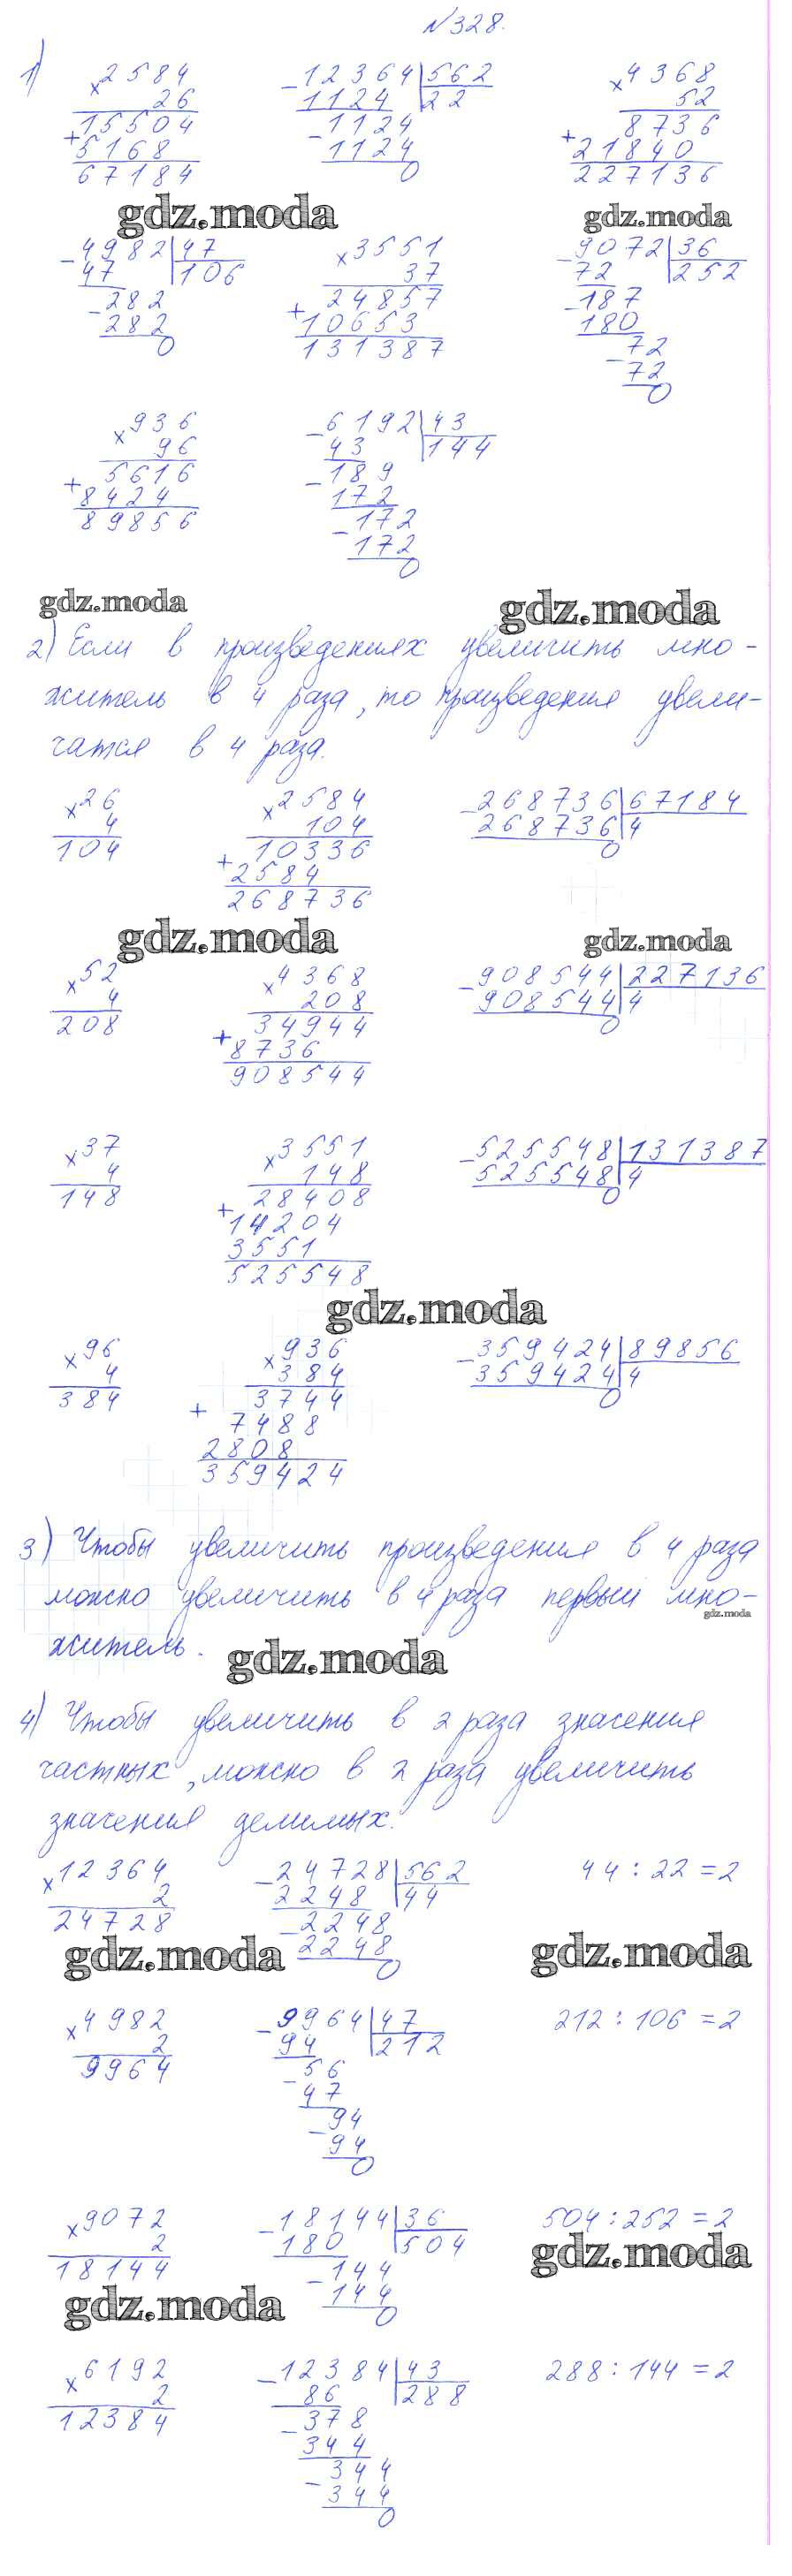 №328.
1)
×2584
26
+15504
5168
67184
-12364|562
1124 22
-1124
1124
0
×4368
52
+8736
21840
227136
gdz.moda
gdz.moda
-4982|47
47 106
-282
282
0
×3551
37
+24857
10653
131387
-9072|36
72 252
-187
180
-72
72
0
×936
96
+5616
8424
89856
-6192|43
43 144
-189
172
-172
172
0
gdz.moda
gdz.moda
2) Если в произведениях увеличить мно-
житель в 4 раза, то произведения увели-
чатся в 4 раза.
×26
4
104
×2584
104
+10336
2584
268736
-268736|67184
268736 4
0
gdz.moda
gdz.moda
×52
4
208
×4368
208
+34944
8736
908544
-908544|227136
908544 4
0
×37
4
148
×3551
148
+28408
14204
3551
525548
-525548|131387
525548 4
0
gdz.moda
×96
4
384
×936
384
+3744
7488
2808
359424
-359424|89856
359424 4
0
3) Чтобы увеличить произведения в 4 раза
можно увеличить в 4 раза первый мно-
gdz.moda
житель.
gdz.moda
4) Чтобы увеличить в 2 раза значения
частных, можно в 2 раза увеличить
значения делимых.
×12364
2
24728
-24728|562
2248 44
-2248
2248
0
44:22=2
gdz.moda
gdz.moda
×4982
2
9964
-9964|47
94 212
-56
47
-94
94
0
212:106=2
×9072
2
18144
-18144|36
180 504
-144
144
0
504:252=2
gdz.moda
gdz.moda
×6192
2
12384
-12384|43
86 288
-378
344
-344
344
0
288:144=2